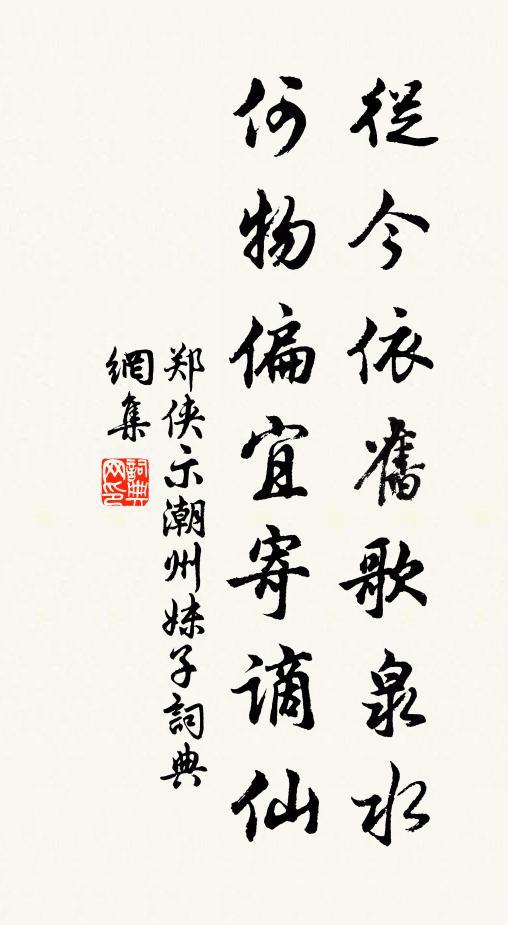 從今依舊歌泉水
何物偏宜寄謫仙
郑侠示潮州妹子詞典
網集
詞典網印